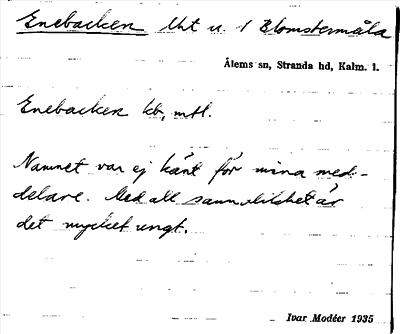 Enebacken Utt u. 1 Blomstermåla
Ålems sn, Stranda hd, Kalm. l.
Enebacken kb, mtl.
Namnet var ej känt för mina med-
delare. Med all sannolikhet är
det mycket ungt.
Ivar Modéer 1935